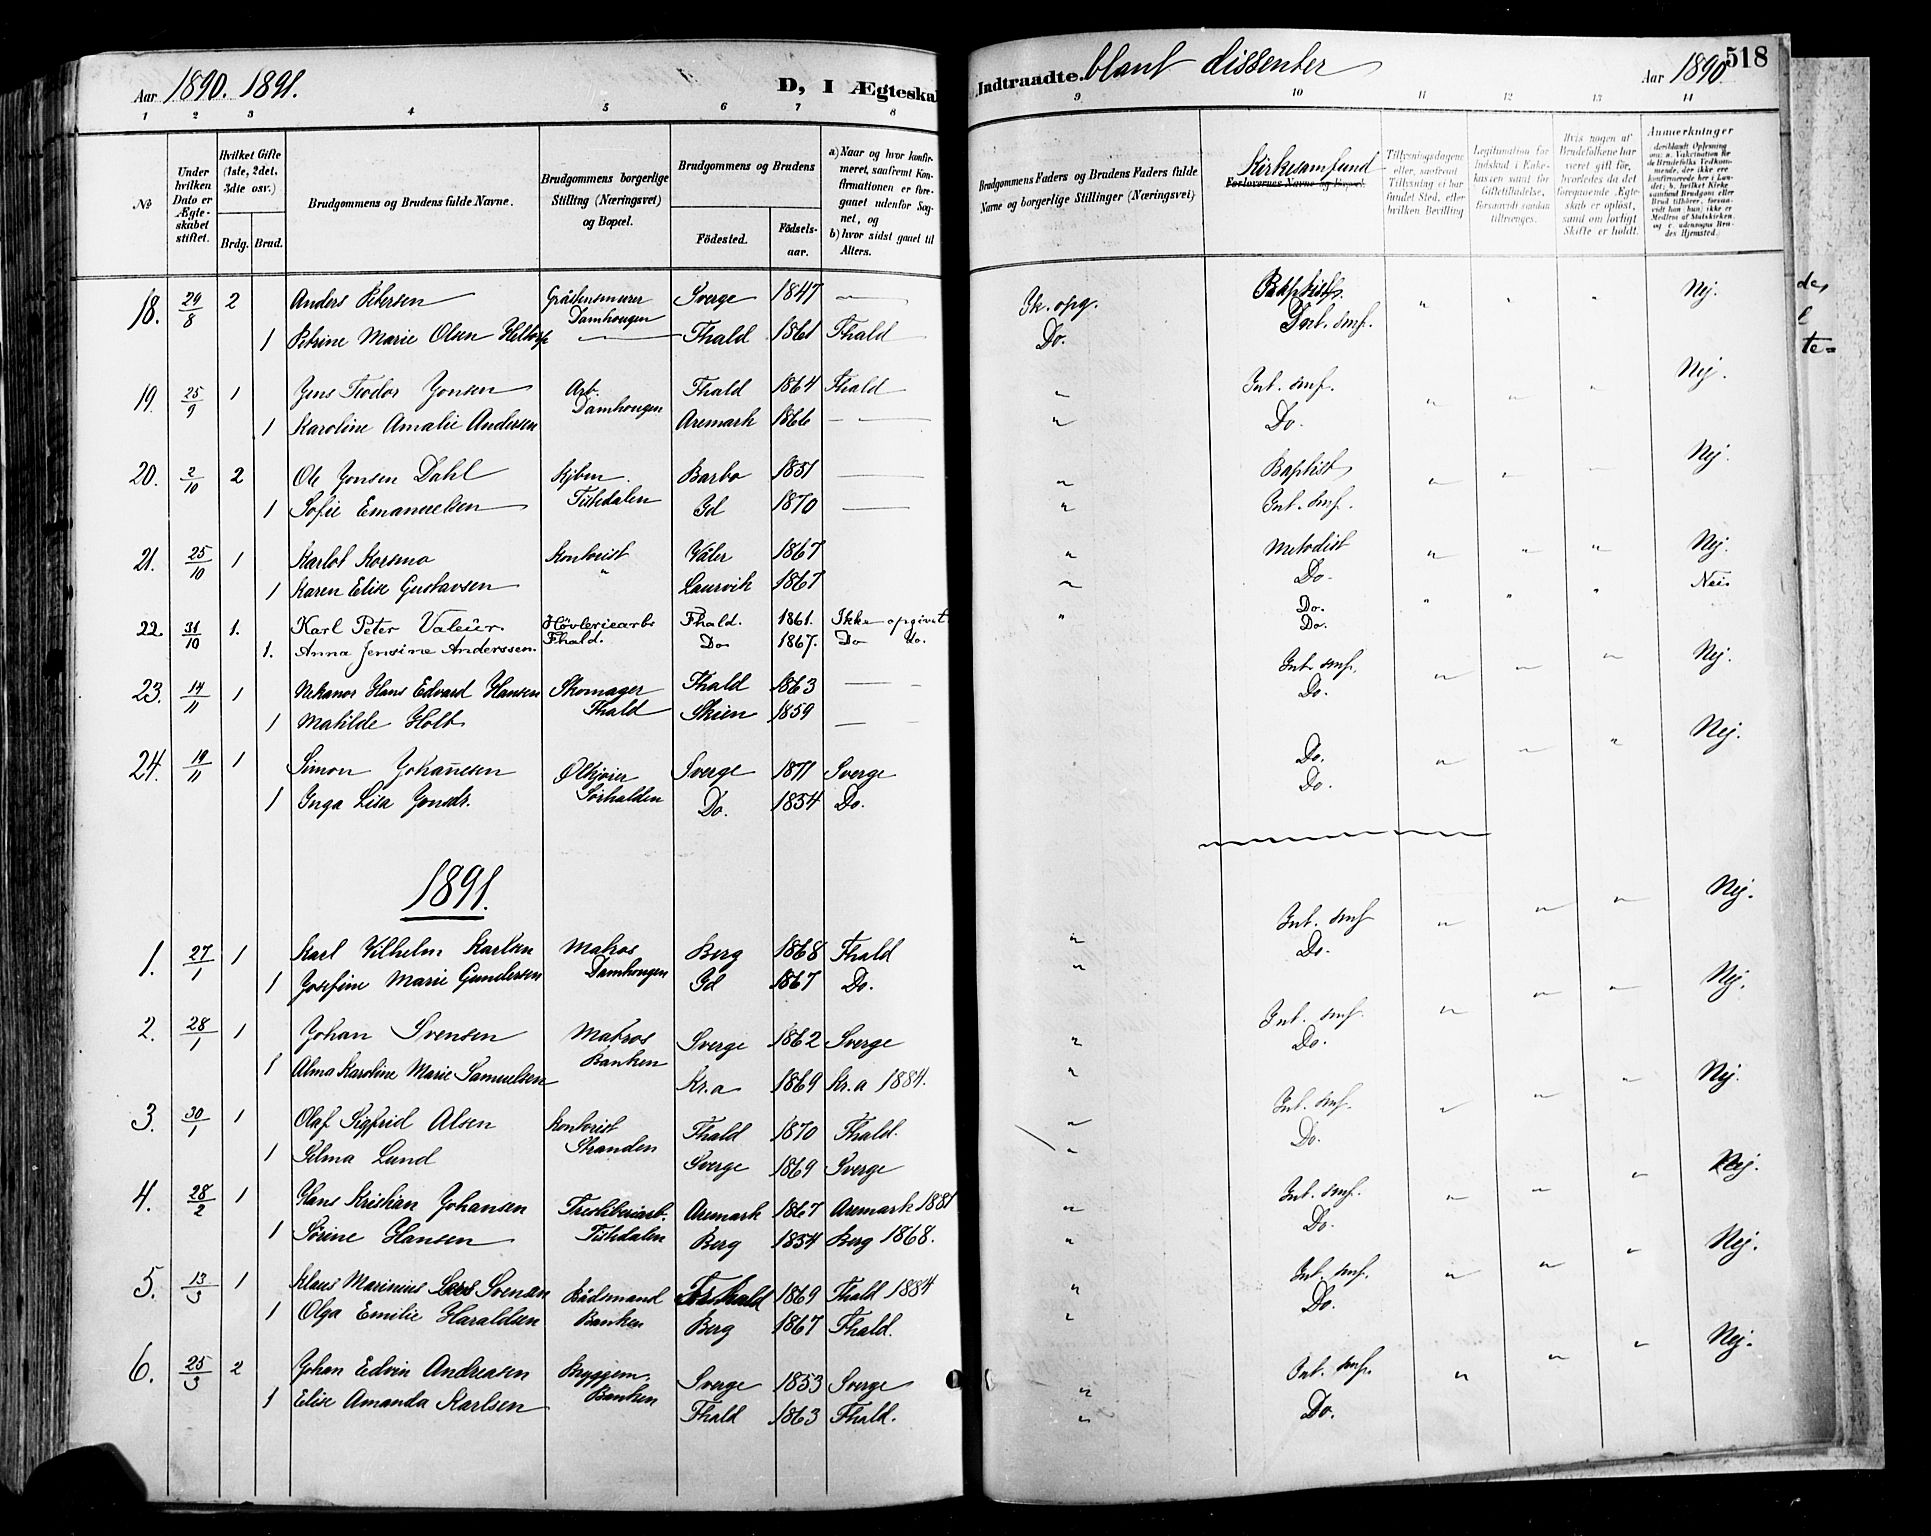 Aar 1890. 1891. D, I Ægteskab Indtraadte. blant dissenter Aar 1890 518
1 2 3 4 5 6 7 8 9 10 11 12 13 14
No
Under hvilken Dato er Ægteskabet stiftet.
Hvilket Gifte (1ste, 2det, 3die osv.)
Brdg. Brud.
Brudgommens og Brudens fulde Navne.
Brudgommens borgerlige Stilling (Næringsvei) og Bopæl.
Brudgommens og Brudens
Födested. Födselsaar.
a) Naar og hvor konfirmeret, saafremt Konfirmationen er foregaaet udenfor Sognet, og b) hvor sidst gaaet til Alters.
Brudgommens Faders og Brudens Faders fulde Navne og borgerlige Stillinger (Næringsvei)
Kirkesamfund
Forlovernes Navne og Bopæl.
Tillysningsdagene eller, saafremt Tillysning ei har fundet Sted, efter hvilken Bevilling
Legitimation for Indskud i Enkekassen samt for Giftetilladelse, forsaavidt saadan tiltrænges.
Hvis nogen af Brudefolkene har været gift før, hvorledes da det foregaaende Ægteskab er opløst, samt om lovligt Skifte er holdt.
Anmærkninger
18. 29/8 2 Anders Petersen Gråstensmurer Sverge 1847 — Ik. opg. Baptist. " " " Nej.
Damhougen
1 Petrine Marie Olsen Heltorp — Fhald 1861 Fhald Do. Int. smf.
19. 25/9 1 Jens Teodor Jonsen Arb. Fhald 1864 Fhald " Int. smf. " " " Nej.
Damhougen
1 Karoline Amalie Andersen Aremark 1866 — " Do.
20. 2/10 2 Ole Jonsen Dahl Kjbm. Barbo 1851 — " Baptist " " " Nej.
1 Sofie Emanuelsen Tistedalen Id 1870 — " Int. smf.
21. 25/10 1 Karlot Korsmo Kontorist Våler 1867 " Metodist " " " Nej.
1 Karen Elise Gustavsen " Laurvik 1867 " Do. Nei.
22. 31/10 1. Karl Peter Valeür. Høvleriearb. Fhald. 1861. Ikke opgivet " Do. " " "
1. Anna Jensine Anderssen. Fhald. Do 1867. Do do. Do.
23. 14/11 1 Nikanor Hans Edvard Hansen Skomager Fhald 1863 — Int. smf. " " " Nej.
1 Matilde Holt Fhald Skien 1859 — Do.
24. 19/11 1 Simon Johannesen Sverge 1871 Sverge Do. " " " Nej.
1 Inga Lisa Jonsdr. Sørhalden Do. 1854 Do. Do.
1891.
1. 27/1 1 Karl Vilhelm Karlsen Matros Berg 1868 Fhald " Int. smf " " " Nej.
1 Josefine Marie Gundersen Damhougen Id 1867 Do. " Do.
2. 28/1 1 Johan Svensen Matros Sverge 1862 Sverge " Int. smf. " " " Nej.
1 Alma Karoline Marie Samuelsen Banken Kr.a 1869 Kr.a 1884. " Do.
3. 30/1 1 Olaf Sigfrid Olsen Kontorist Fhald 1870 Fhald. " Int. smf. " " " Nej.
1 Selma Lund Stranden Sverge 1869 Sverge " Do.
4. 28/2 1 Hans Kristian Johansen Aremark 1867 Aremark 1881 " Int. smf. " " " Nej.
1 Sørine Hansen Tistedalen Berg 1854 Berg 1868. " Do.
5. 13/3 1 Klaus Marinius Svensen Bådsmand Fhald 1869 Fhald 1884 " Int. smf. " " " Nej.
1 Olga Emilie Haraldsen Banken Berg 1867 Fhald. " Do.
6. 25/3 2 Johan Edvin Andreasen Bryggem. Sverge 1853 Sverge " Int. smf. " " " Nej.
1 Elise Amanda Karlsen Banken Fhald 1863 Fhald. " Do.